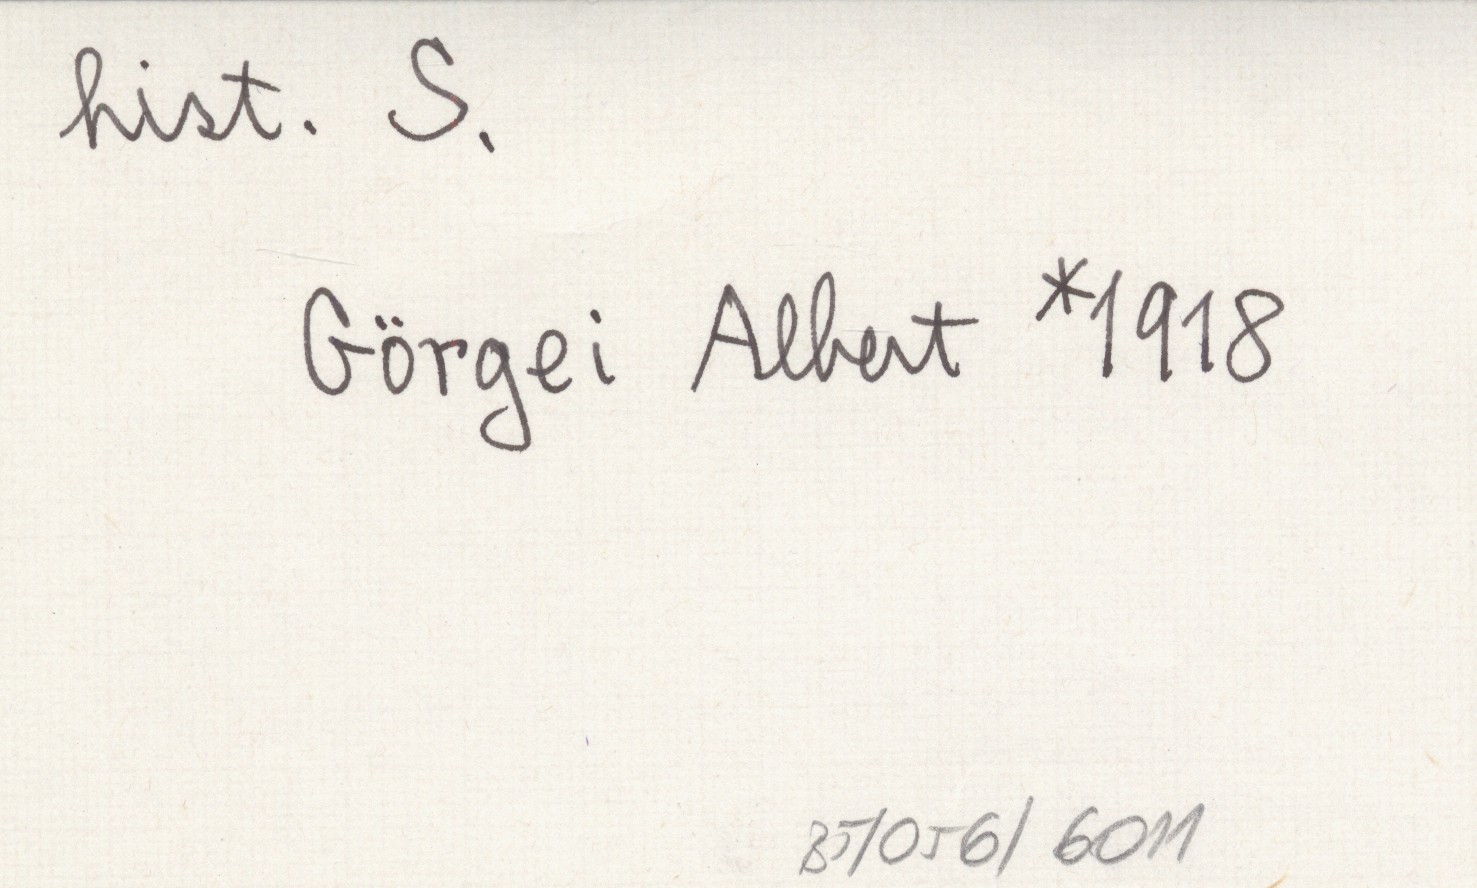 hist. S.
Görgei Albert *1918
35/056/ 6011